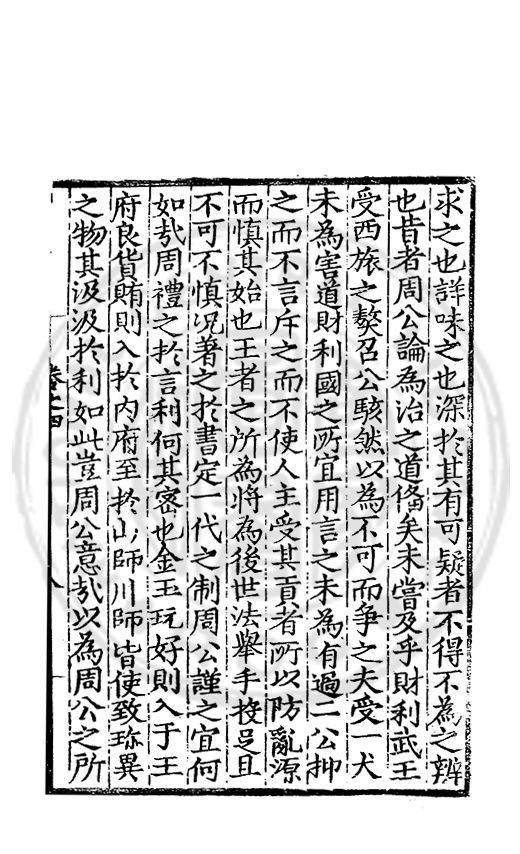 求之也詳味之也深於其有可疑者不得不為之辨
也昔者周公論為治之道備矣未嘗及乎財利武王
受西旅之獒召公駭然以為不可而爭之夫受一犬
未為害道財利國之所宜用言之未為有過二公抑
之而不言斥之而不使人主受其貢者所以防亂源
而慎其始也王者之所為將為後世法舉手投足且
不可不慎况著之於書定一代之制周公謹之宜何
如㢤周禮之於言利何其密也金玉玩好則入于王
府良貨賄則入於内府至於山師川師皆使致珎異
之物其汲汲於利如此豈周公意㢤以為周公之所
卷之四
八